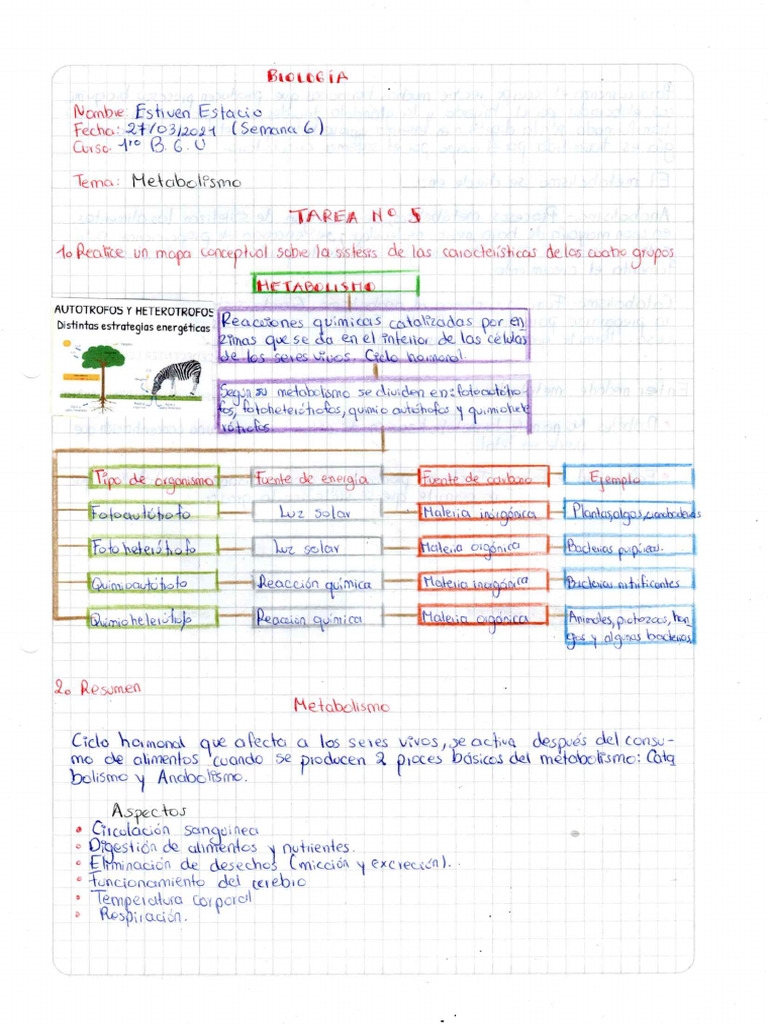 BIOLOGÍA
Nombre: Estiven Estacio
Fecha: 27/03/2021 (Semana 6)
Curso: 1ro B.G.U
Tema: Metabolismo
TAREA Nº 5
1. Realice un mapa conceptual sobre la sistesis de las características de los cuatro grupos
METABOLISMO
AUTÓTROFOS Y HETERÓTROFOS
Distintas estrategias energéticas
Reacciones quimicas catalizadas por en
zimas que se da en el interior de las células
de los seres vivos. Ciclo hormonal.
Según su metabolismo se dividen en: fotoautótro-
fos, fotoheterótrofos, quimio autótrofos y quimiohete
rótrofos.
Tipo de organismo Fuente de energía Fuente de carbono Ejemplo
Fotoautótrofo Luz solar Materia inorgánica Plantas, algas, cianobacterias
Fotoheterótrofo Luz solar Materia orgánica Bacterias purpúreas.
Quimioautótrofo Reacción química Materia inorgánica Bacterias nitrificantes
Quimioheterótrofo Reacción química Materia orgánica Animales, protozoos, hon
gos y algunas bacterias
2. Resumen
Metabolismo
Ciclo hormonal que afecta a los seres vivos, se activa después del consu-
mo de alimentos cuando se producen 2 proces básicos del metabolismo: Cata
bolismo y Anabolismo.
Aspectos
• Circulación sanguínea
• Digestión de alimentos y nutrientes.
• Eliminación de desechos (micción y excreción).
• Funcionamiento del cerebro
• Temperatura corporal
• Respiración.